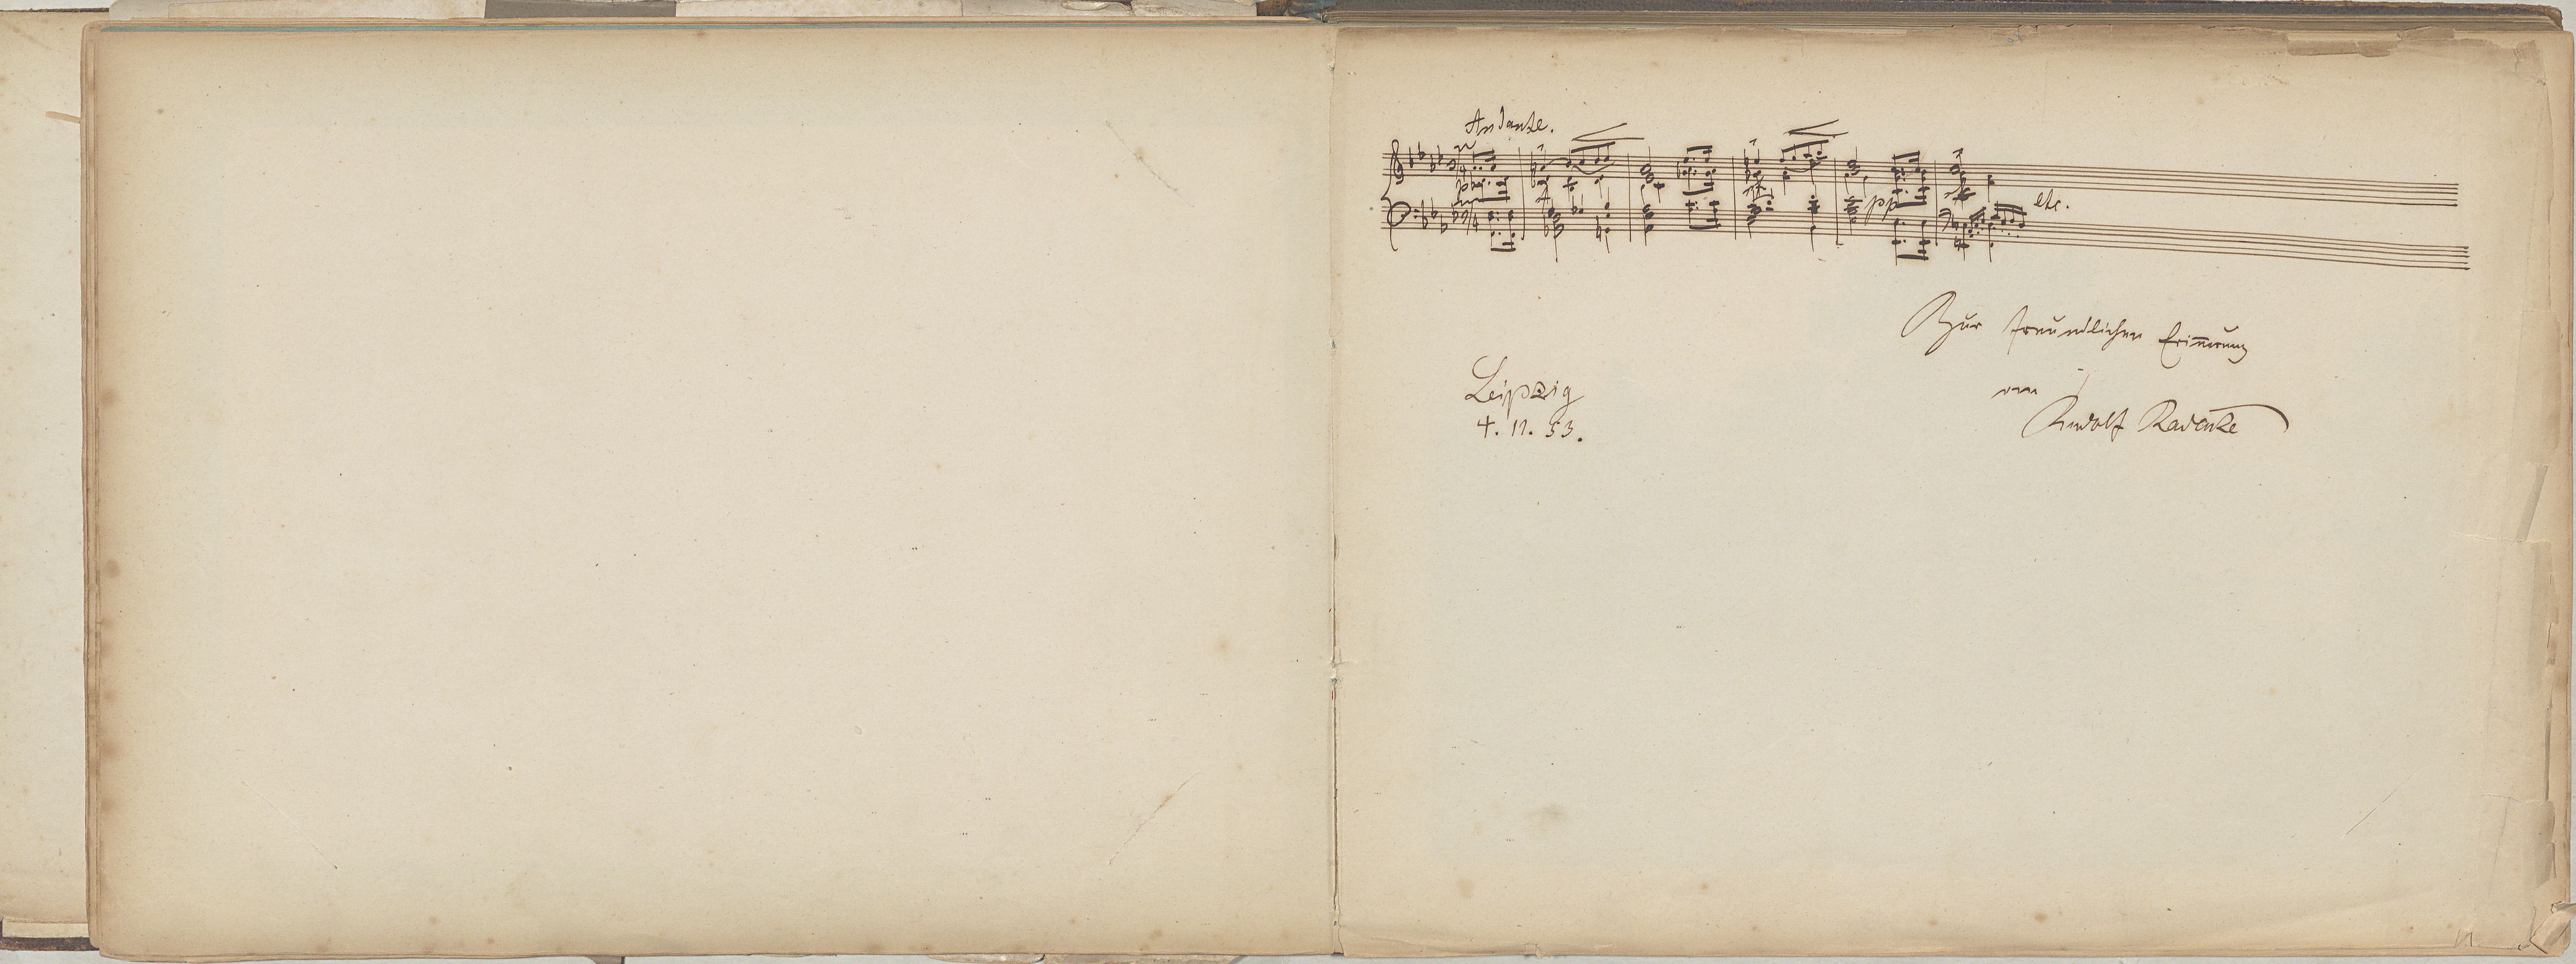 Andante.
p
pp
etc.
Zur freundlichen Erinnerung
von
Rudolf Radecke
Leipzig
4. 11. 53.